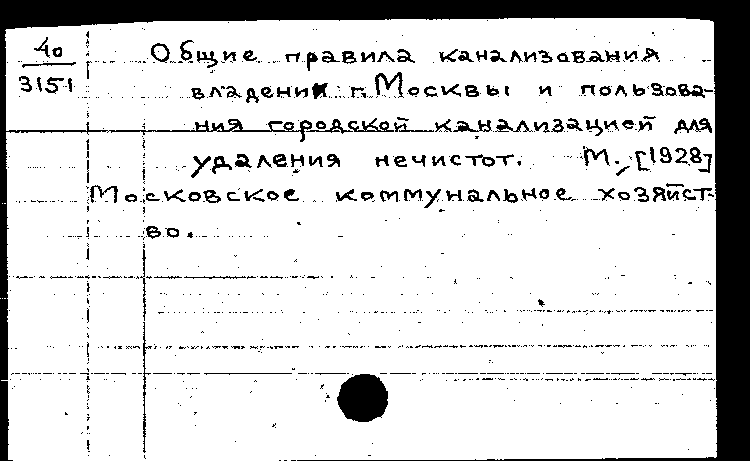 40
3151
Общие правила канализования
владений г. Москвы и пользова-
ния городской канализацией для
удаления нечистот. М., [1928]
Московское коммунальное хозяйст-
во.